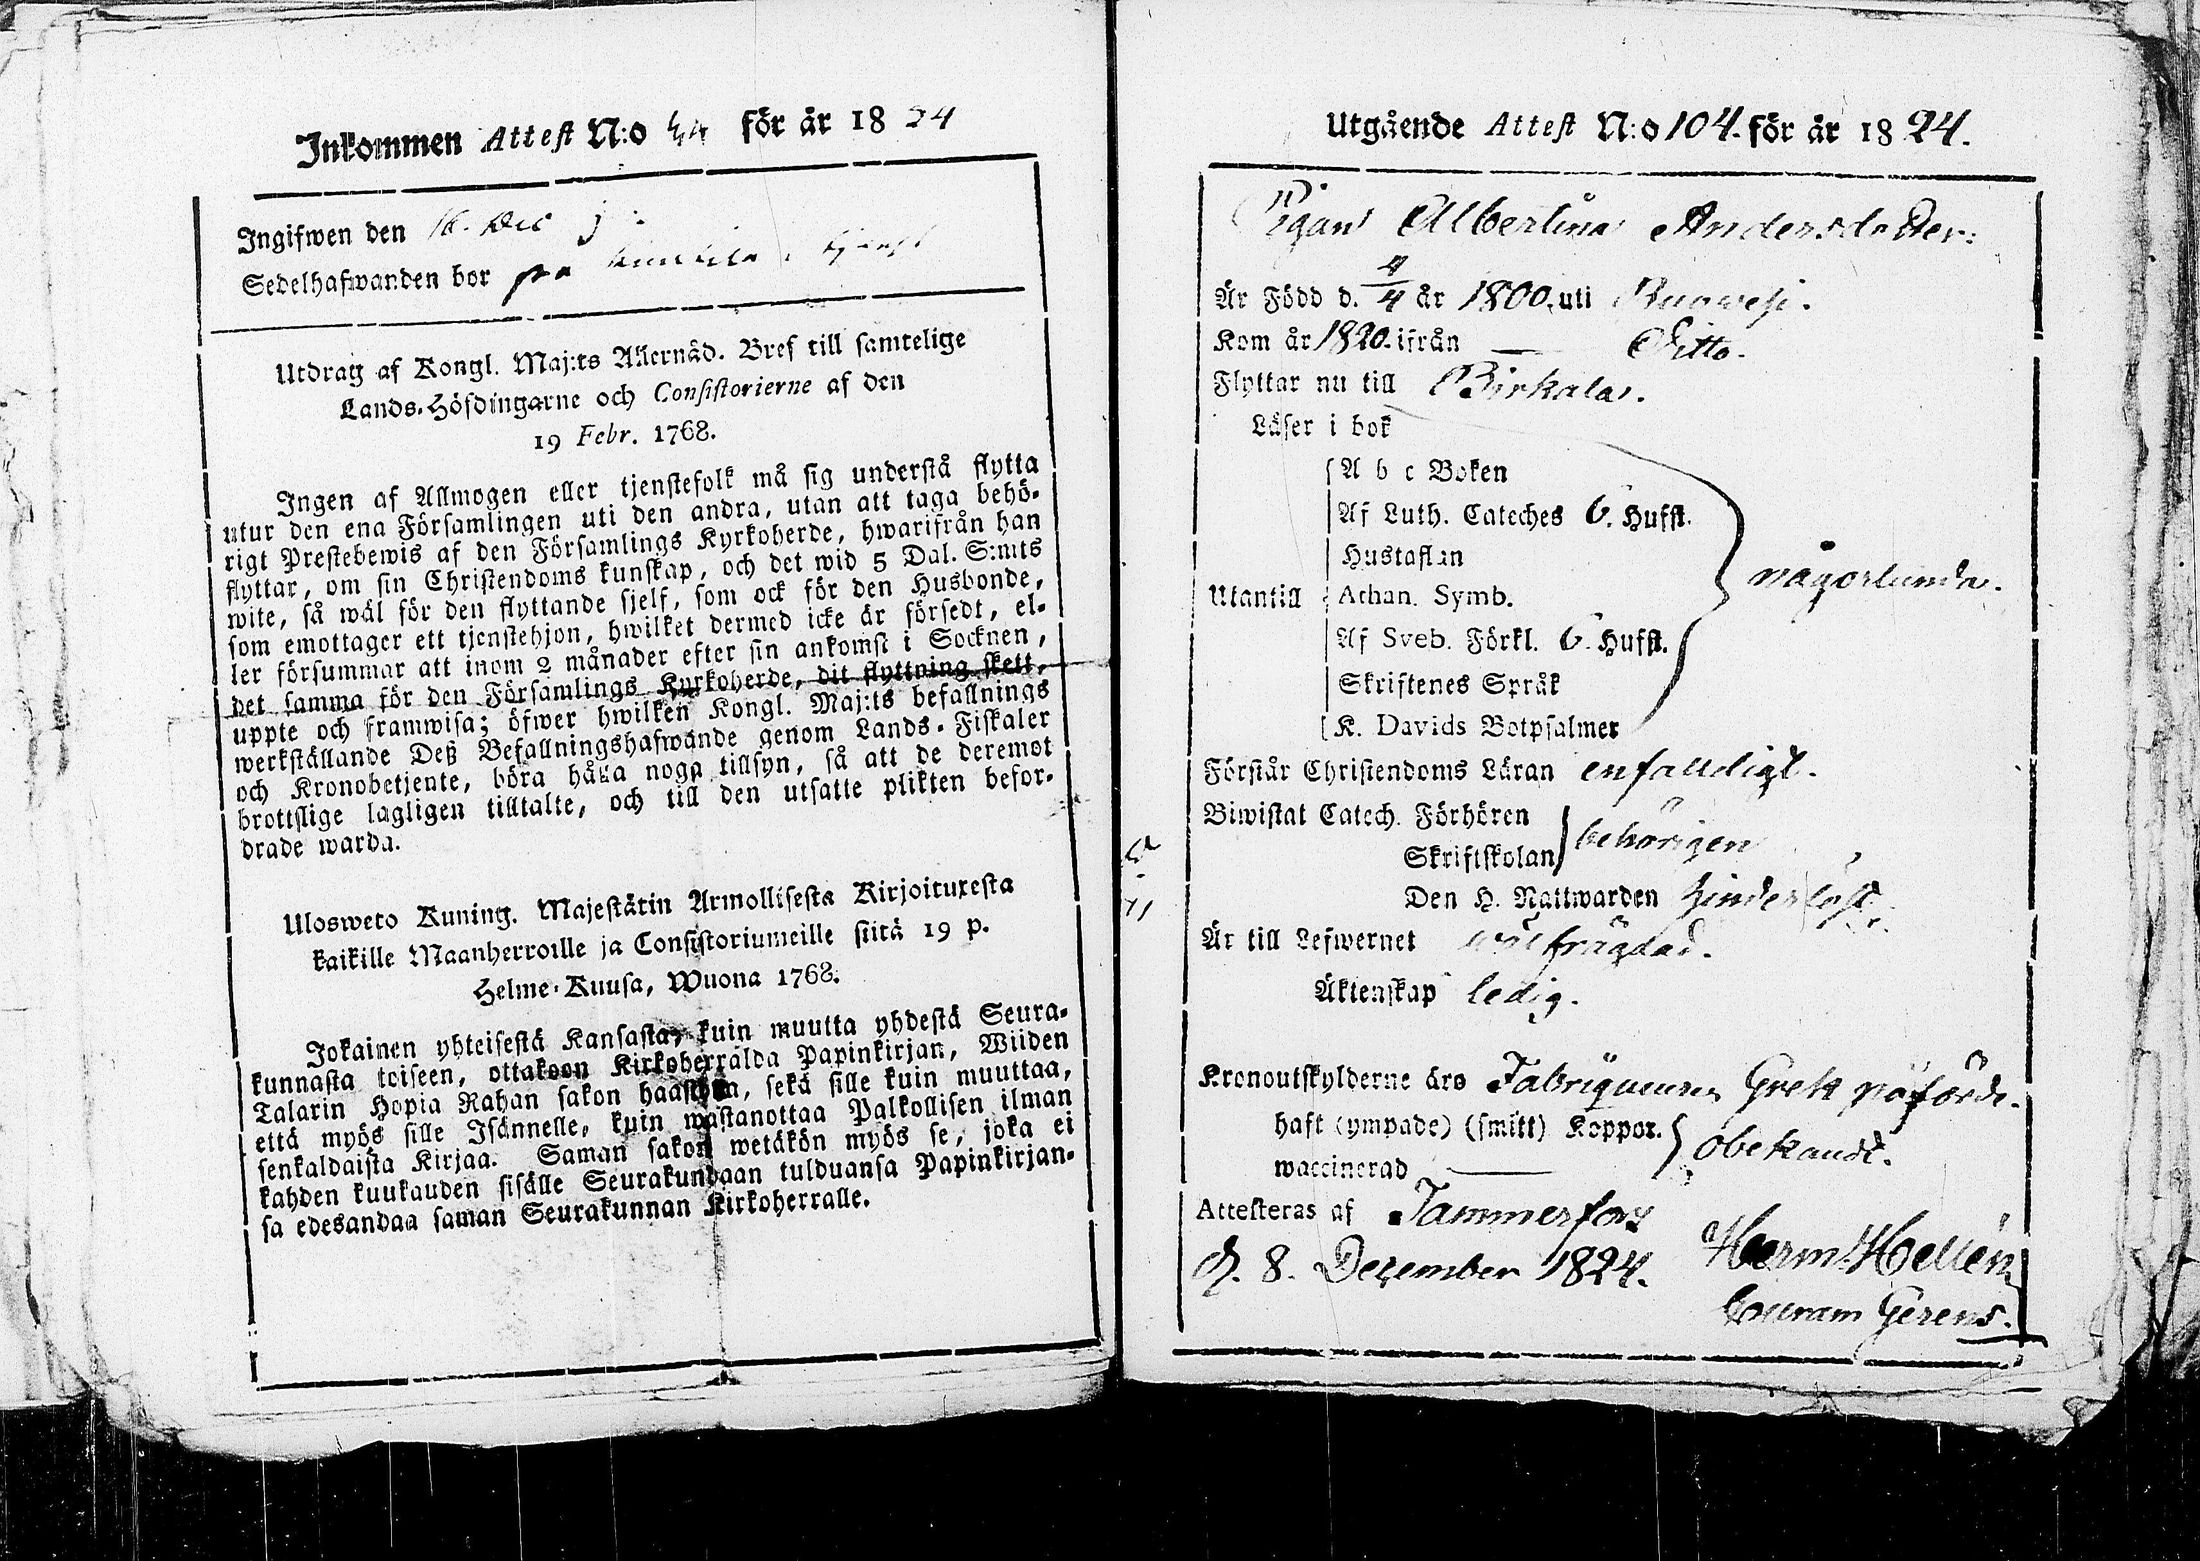 Inkommen Attest N:o 44 för år 1824
Ingifwen den 16. Dec
Sedelhafwanden bor på
Utdrag af Kongl. Maj:ts Allernåd. Bref till samtelige
Lands-Höfdingarne och Consistorierne af den
19 Febr. 1768.
Ingen af Allmogen eller tjenstefolk må sig understå flytta
utur den ena Församlingen uti den andra, utan att taga behö-
rigt Prestebewis af den Församlings Kyrkoherde, hwarifrån han
flyttar, om sin Christendoms kunskap, och det wid 5 Dal. S:mts
wite, så wäl för den flyttande sjelf, som ock för den Husbonde,
som emottager ett tjenstehjon, hwilket dermed icke är försedt, el-
ler försummar att inom 2 månader efter sin ankomst i Socknen,
det samma för den Församlings Kyrkoherde, dit flyttning skett,
uppte och framwisa; öfwer hwilken Kongl. Maj:ts befallnings
werkställande Deß Befallningshafwande genom Lands-Fiskaler
och Kronobetjente, böra hålla noga tillsyn, så att de deremot
brottslige lagligen tilltalte, och till den utsatte plikten befor-
drade warda.
Ulosweto Kuning. Majestätin Armollisesta Kirjoituxesta
kaikille Maanherroille ja Consistoriumeille siitä 19 p.
Helme-Kuusa, Wuona 1768.
Jokainen yhteisestä Kansasta, kuin muutta yhdestä Seura-
kunnasta toiseen, ottakoon Kirkoherralda Papinkirjan, Wiiden
Talarin Hopia Rahan sakon haastolla, sekä sille kuin muuttaa,
että myös sille Isännelle, kuin wastanottaa Palkollisen ilman
senkaldaista Kirjaa. Saman sakon wetäkön myös se, joka ei
kahden kuukauden sisälle Seurakundaan tulduansa Papinkirjan-
sa edesandaa saman Seurakunnan Kirkoherralle.
Utgående Attest N:o 104. för år 1824.
Pigan Albertina Andersdotter.
Är Född d. 4/4 år 1800. uti Ruowesi.
Kom år 1820. ifrån — Ditto.
Flyttar nu till Birkala.
Läser i bok
A b c Boken
Af Luth. Cateches 6. Hufst.
Hustaflan
Utantill Athan. Symb. någorlunda.
Af Sveb. Förkl. 6. Hufst.
Skriftenes Språk
K. Davids Botpsalmer
Förstår Christendoms Läran enfaldigt.
Biwistat Catech. Förhören
Skriftskolan behörigen
Den H. Nattwarden hinderlöst.
Är till Lefwernet wälfrägdad.
Äktenskap ledig.
Kronoutskylderne äro Grek påförde.
haft (ympade) (smitt) Koppor.
waccinerad — obekandt.
Attesteras af Tammerfors
d. 8. December 1824. Herm: Hellén
Gerens.